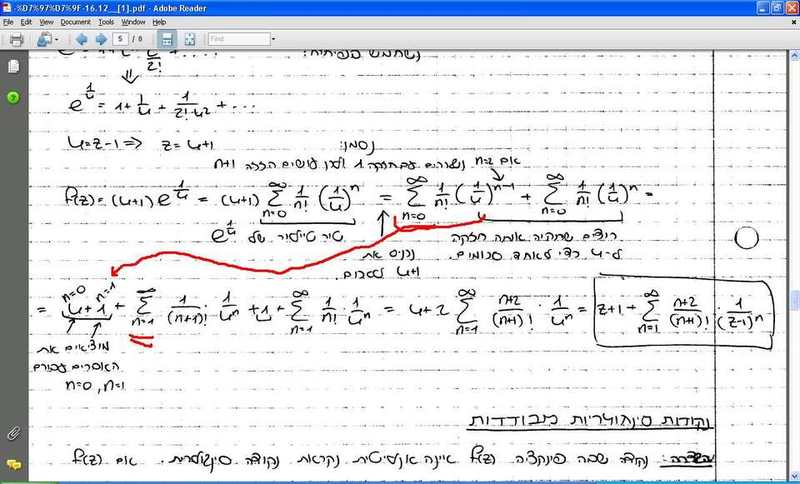 -%D7%97%D7%9F-16.12__[1].pdf - Adobe Reader
File Edit View Document Tools Window Help
5 / 8 Find
2!
e^{1/u} = 1 + 1/u + 1/(2!·u²) + ...
u=z-1 => z=u+1 נסמן:
אם n=2 נשארים עם חזקה 1 לכן עושים הזזה n+1
f(z) = (u+1) e^{1/u} = (u+1) ∑_{n=0}^{∞} 1/n! (1/u)^n = ∑_{n=0}^{∞} 1/n! (1/u)^{n-1} + ∑_{n=0}^{∞} 1/n! (1/u)^n =
טור טיילור של e^{1/u}
נכניס את u+1 לסכום
רוצים שתהיה אותה חזקה ל-u כדי לאחד סכומים.
n=0 n=1
= u+1 + ∑_{n=1}^{∞} 1/(n+1)! · 1/u^n + 1 + ∑_{n=1}^{∞} 1/n! · 1/u^n = u+2 ∑_{n=1}^{∞} (n+2)/(n+1)! · 1/u^n = z+1 + ∑_{n=1}^{∞} (n+2)/(n+1)! · 1/(z-1)^n
מוציאים את
האיברים עבורם
n=0, n=1
נקודות סינגולריות מבודדות
הגדרה: נקודה שבה פונקציה f(z) אינה אנליטית נקראת נקודה סינגולרית. אם f(z)